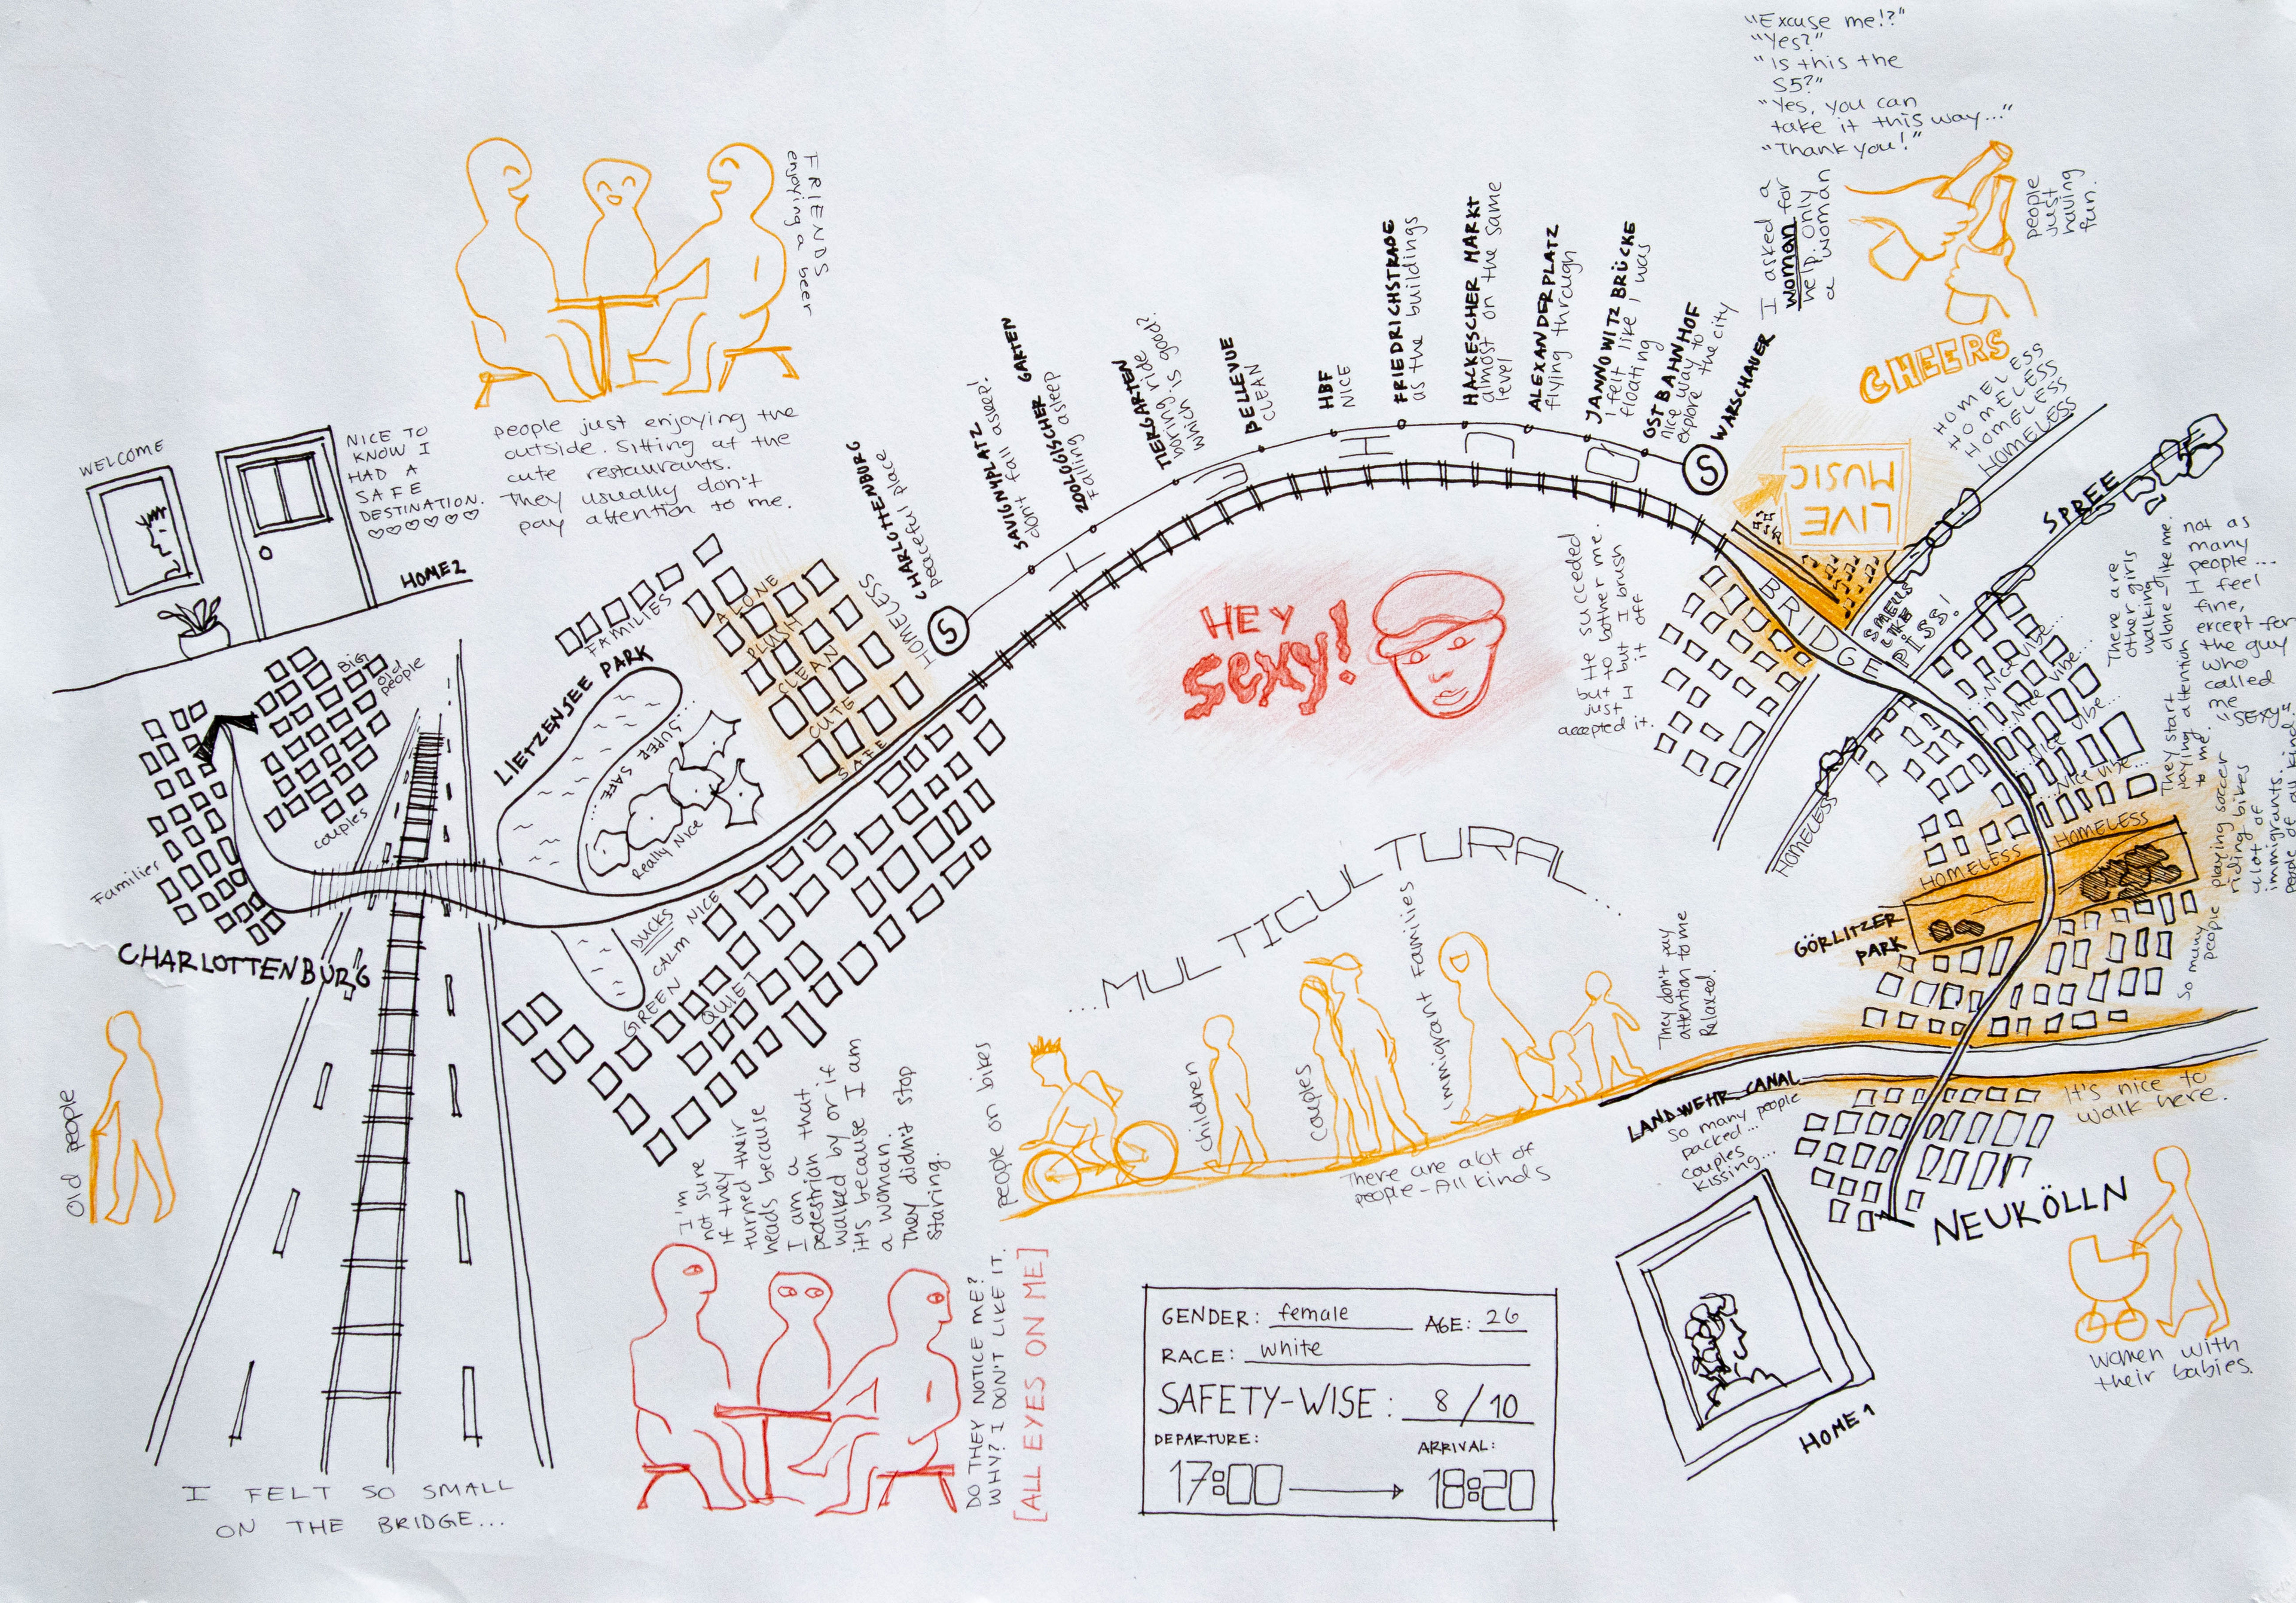 "Excuse me!?"
"Yes?"
"Is this the
S5?"
"Yes, you can
take it this way..."
"Thank you!"
I asked a
woman for
help. Only
a woman
people
just
having
fun.
CHEERS
HOMELESS
HOMELESS
HOMELESS
HOMELESS
FRIENDS
enjoying a beer
people just enjoying the
outside. Sitting at the
cute restaurants.
They usually don't
pay attention to me.
WELCOME
NICE TO
KNOW I
HAD A
SAFE
DESTINATION.
♡♡♡♡♡♡
HOME2
S
CHARLOTTENBURG
peaceful place
SAVIGNYPLATZ
don't fall asleep!
ZOOLOGISCHER GARTEN
Falling asleep
TIERGARTEN
boring ride
which is good?
BELLEVUE
CLEAN
HBF
NICE
FRIEDRICHSTRAßE
as the buildings
HACKESCHER MARKT
almost on the same
level
ALEXANDERPLATZ
flying through
JANNOWITZ BRÜCKE
I felt like I was
floating
OSTBAHNHOF
nice way to
explore the city
WARSCHAUER
S
LIVE
MUSIC
BRIDGE
SMELLS
LIKE
PISS!
SPREE
HOMELESS
...Nice vibe...
...Nice vibe...
...Nice vibe...
...Nice vibe...
There are
other girls
walking
alone-like me.
They start
paying attention
to me.
not as
many
people...
I feel
fine,
except for
the guy
who
called
me
"SEXY"
playing soccer
riding bikes
alot of
immigrants.
people of all kind
So many
people
HOMELESS
HOMELESS
GÖRLITZER
PARK
HEY
SEXY!
He succeded
but to bother me.
just I but I brush
I it off
accepted it.
FAMILIES
ALONE
PLUSH
CLEAN
CUTE
SAFE
HOMELESS
LIETZENSEE PARK
...SUPER SAFE...
Really Nice
BIG
Old
people
couples
Families
CHARLOTTENBURG
DUCKS
NICE
CALM
GREEN
QUIET
Old people
I FELT SO SMALL
ON THE BRIDGE...
I'm
not sure
if they
turned their
heads because
I am a
pedestrian that
walked by or if
it is because I am
a woman.
They didn't stop
staring.
DO THEY NOTICE ME?
WHY? I DON'T LIKE IT.
[ALL EYES ON ME]
...MULTICULTURAL...
people on bikes
children
couples
immigrant Families
They don't pay
attention to me
Relaxed.
There are alot of
people-All kinds
LANDWEHR CANAL
So many people
packed...
couples
kissing...
It's nice to
walk here.
NEUKÖLLN
women with
their babies.
HOME 1
GENDER: female AGE: 26
RACE: white
SAFETY-WISE: 8/10
DEPARTURE: ARRIVAL:
17:00 18:20